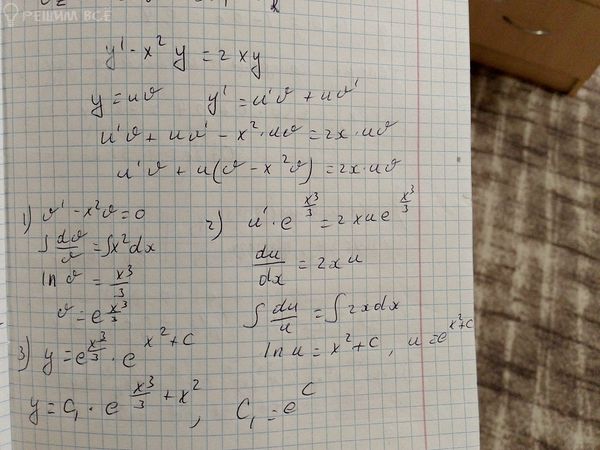 РЕШИМ ВСЁ
y' - x² y = 2xy
y = uv    y' = u'v + uv'
u'v + uv' - x²·uv = 2x·uv
u'v + u(v - x²v) = 2x·uv
1) v' - x²v = 0
∫ dv/v = ∫x²dx
ln v = x³/3
v = e^(x³/3)
2) u'·e^(x³/3) = 2xue^(x³/3)
du/dx = 2xu
∫ du/u = ∫2xdx
ln u = x²+c, u = e^(x²+c)
3) y = e^(x³/3) · e^(x²+c)
y = C₁ · e^(x³/3 + x²), C₁ = e^C